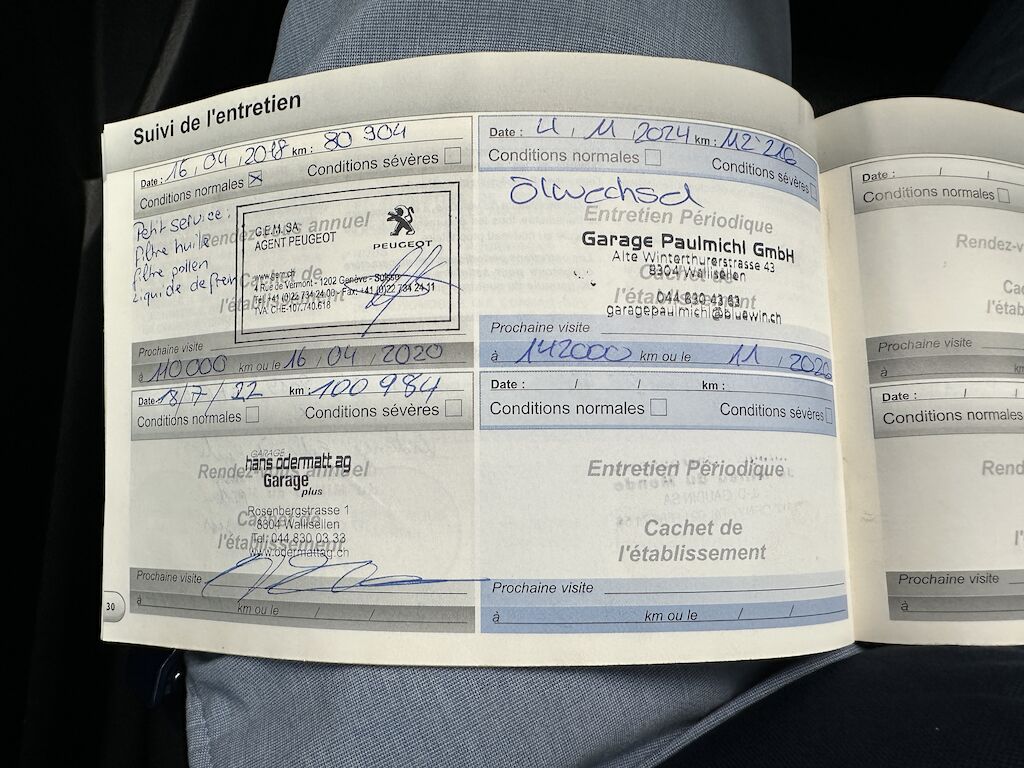 Suivi de l'entretien
Date : 16 / 04 / 2018 km : 80 904
Conditions normales ☒ Conditions sévères ☐
Petit service :
filtre huile
filtre pollen
liquide de frein
Rendez-vous annuel
Cachet de
l'établissement
G.E.M. SA
AGENT PEUGEOT
PEUGEOT
www.gem.ch
4 Rue de Vermont - 1202 Genève - Suisse
Tél. +41 (0)22 734 24 00 - Fax: +41 (0)22 734 24 11
TVA CHE-107.740.618
Prochaine visite
à 110000 km ou le 16 / 04 / 2020
Date 18/7/22 km : 100 984
Conditions normales ☐ Conditions sévères ☐
Rendez-vous annuel
Cachet de
l'établissement
GARAGE
hans odermatt ag
Garage plus
Rosenbergstrasse 1
8304 Wallisellen
Tel. 044 830 03 33
www.odermattag.ch
Prochaine visite
à km ou le / /
30
Date : 4 / 11 / 2024 km : 112 216
Conditions normales ☐ Conditions sévères ☐
Ölwechsel
Entretien Périodique
Cachet de
l'établissement
Garage Paulmichl GmbH
Alte Winterthurerstrasse 43
8304 Wallisellen
044 830 43 63
garagepaulmichl@bluewin.ch
Prochaine visite
à 142000 km ou le 11 / 2026
Date : / / km :
Conditions normales ☐ Conditions sévères ☐
Entretien Périodique
Cachet de
l'établissement
Prochaine visite
à km ou le / /
Date : / /
Conditions normales ☐
Prochaine visite
à
Date : / /
Conditions normales
Prochaine visite
à